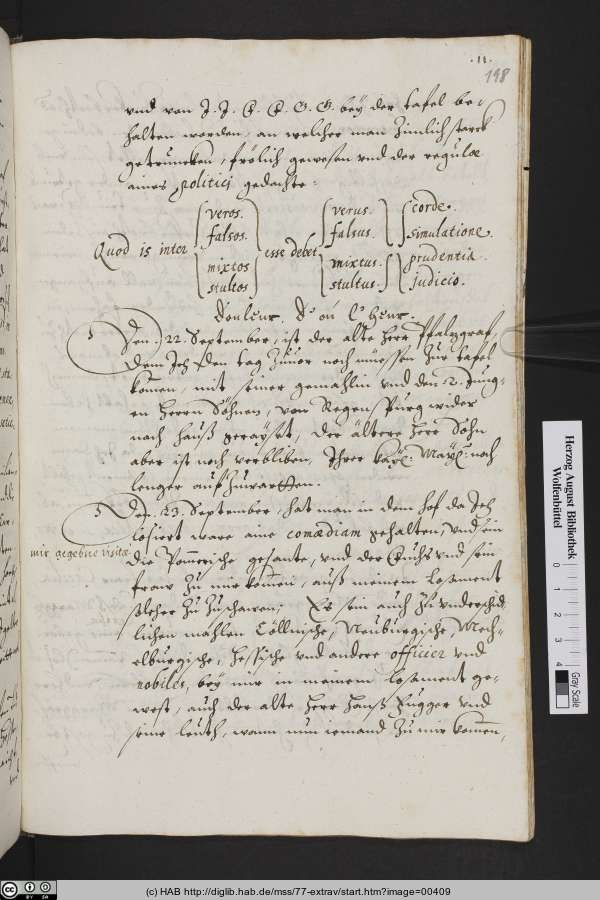 .11.
198
vnd von J. J. E. E. G. G. bey der tafel be-
halten worden, an welcher man Zimlich starck
getruncken, frölich gewesen vnd der regulæ
aines politicj gedachte:
Quod is inter { veros. falsos. mixtos stultos } esse debet { verus. falsus. } { mixtus. stultus. } { corde. simulatione. prudentia. judicio.
Douleur, d'ou l'heur.
Den .22. September, ist der alte Herr Pfalzgraf,
dem Ich den tag Zuvor noch müessen Zur tafel
kommen, mit seiner gemahlin vnd den 2. Jung-
en Herrn Söhnen, von Regenspurg wider
nach hauß gerayset, der ältere Herr Sohn
aber ist noch verbliben, Ihrer Kay: May: noch
lenger aufzuwartten.
Den .23. September, hat man in dem hof da Ich
losiert ware aine comœdiam gehalten, vnd sein
mir gegebne visitæ
die Pommerische gesante, vnd der Fuchs vnd sein
fraw Zu mir kommen, auß meinem losament
Zu Zuschawen; Es sein auch Zu vnderschid-
lichen mahlen Cöllnische, Neuburgische, Mech-
elburgische, hessische vnd andere officier vnd
nobiles, bey mir in meinem losament ge-
west, auch der alte Herr Hanß Fugger vnd
seine leuth, wann nun iemand Zu mir kommen,
Herzog August Bibliothek
Wolfenbüttel
0 1 2 3 4
Gray Scale
(c) HAB http://diglib.hab.de/mss/77-extrav/start.htm?image=00409